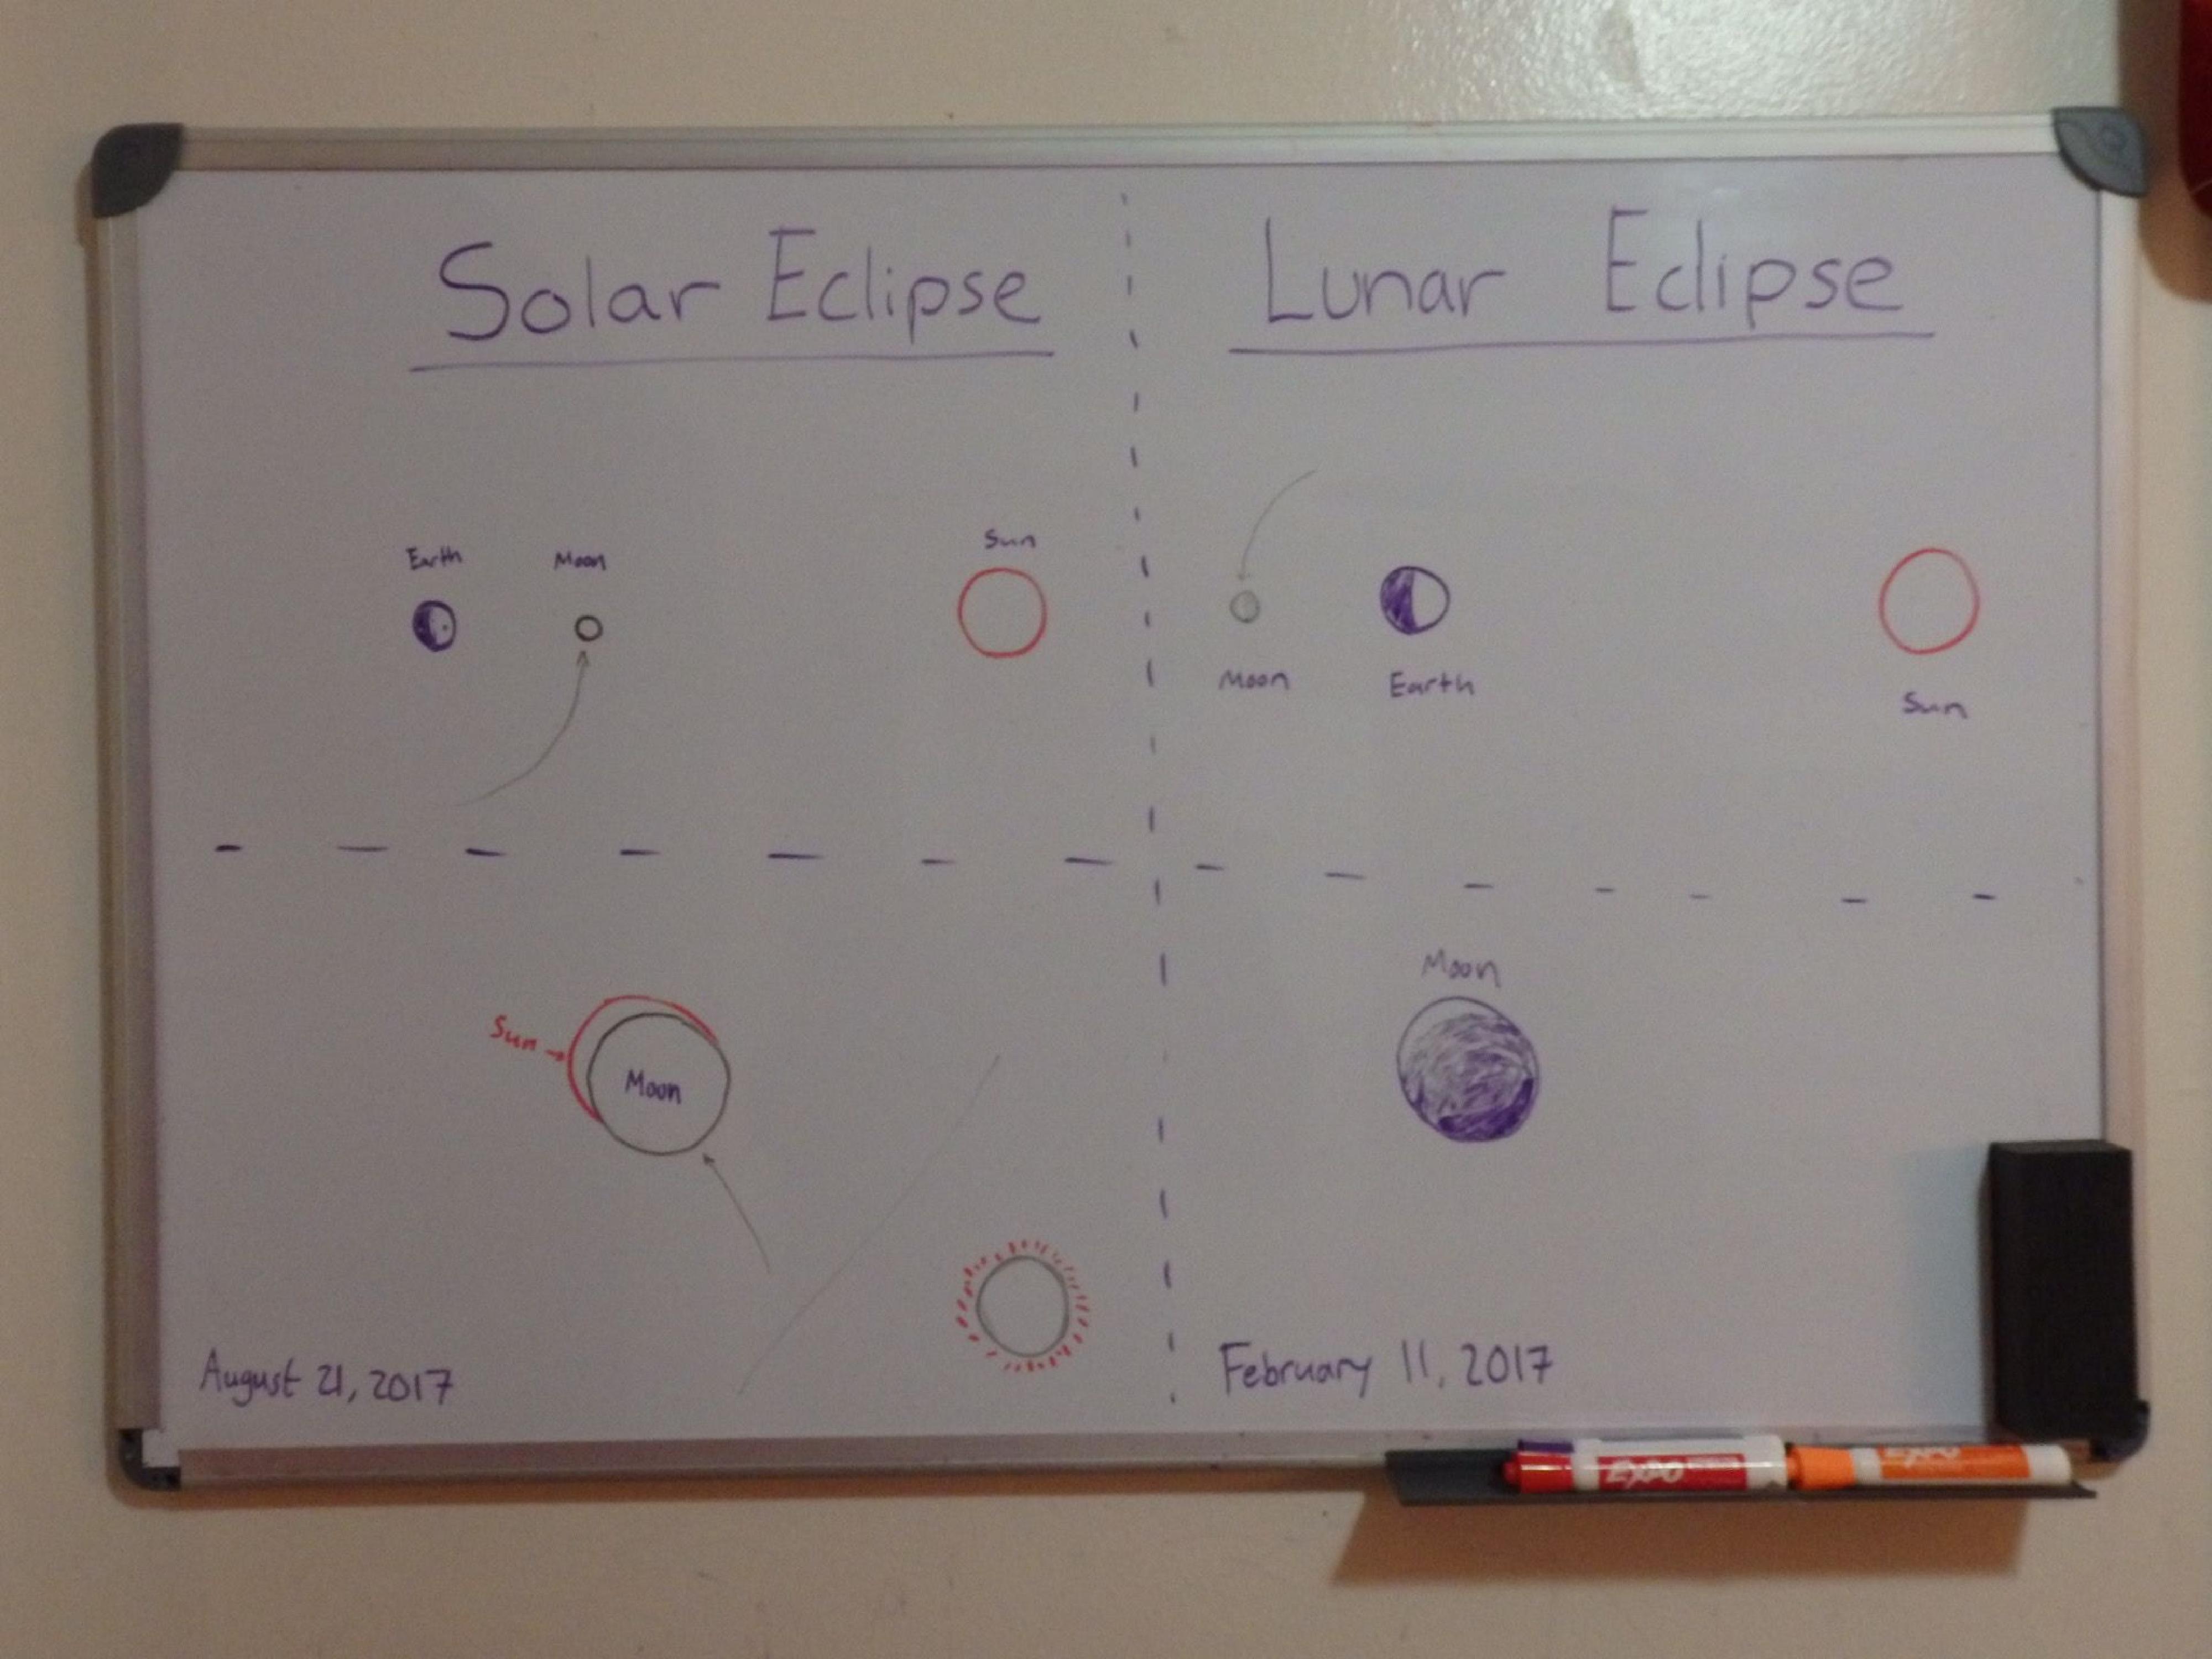 Solar Eclipse
Earth
Moon
Sun
Sun
Moon
August 21, 2017
Lunar Eclipse
Moon
Earth
Sun
Moon
February 11, 2017
EXPO
EXPO